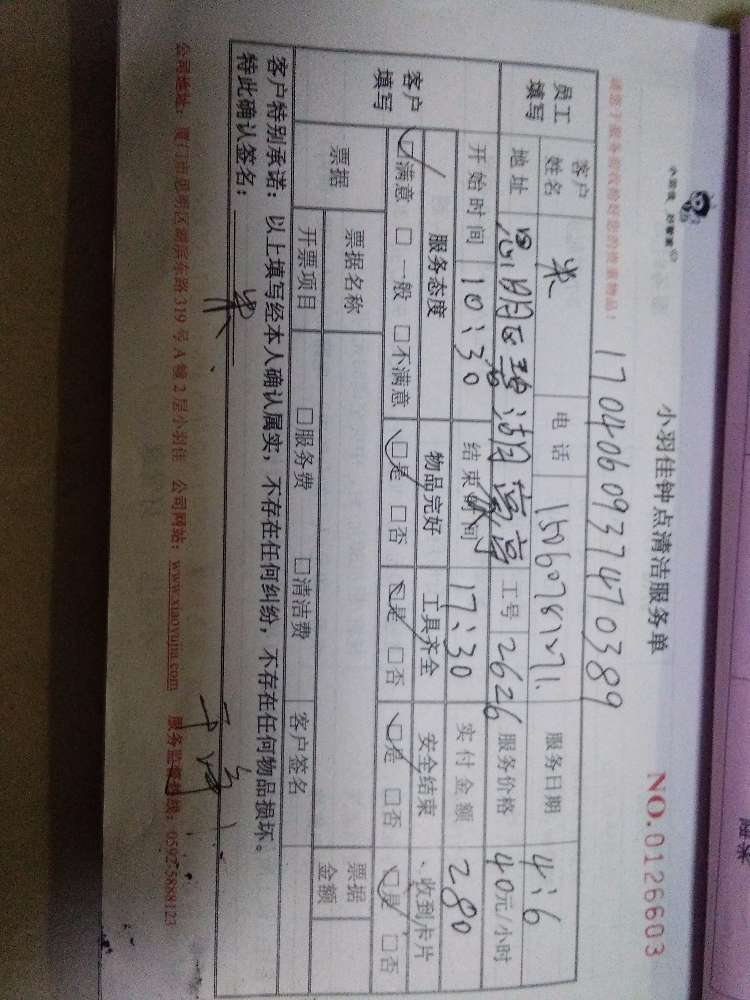 小羽佳钟点清洁服务单
NO.0126603
17040609374470389
请您于服务前收拾好您的贵重物品！
员工填写 客户姓名 米 电话 服务日期 4:6
地址 思明区碧湖 工号 2626 服务价格 40元/小时
开始时间 10:30 结束时间 17:30 实付金额 280
客户填写 服务态度 物品完好 工具齐全 安全结束 、收到卡片
☑满意 □一般 □不满意 ☑是 □否 ☑是 □否 ☑是 □否 ☑是 □否
票据 票据名称 票据金额
开票项目 □服务费 □清洁费 客户签名
客户特别承诺：以上填写经本人确认属实，不存在任何纠纷，不存在任何物品损坏。
特此确认签名：米
公司地址：厦门市思明区湖滨东路319号A幢2层小羽佳 公司网站：www.xiaoyujia.com 服务监督热线：0592-5888123